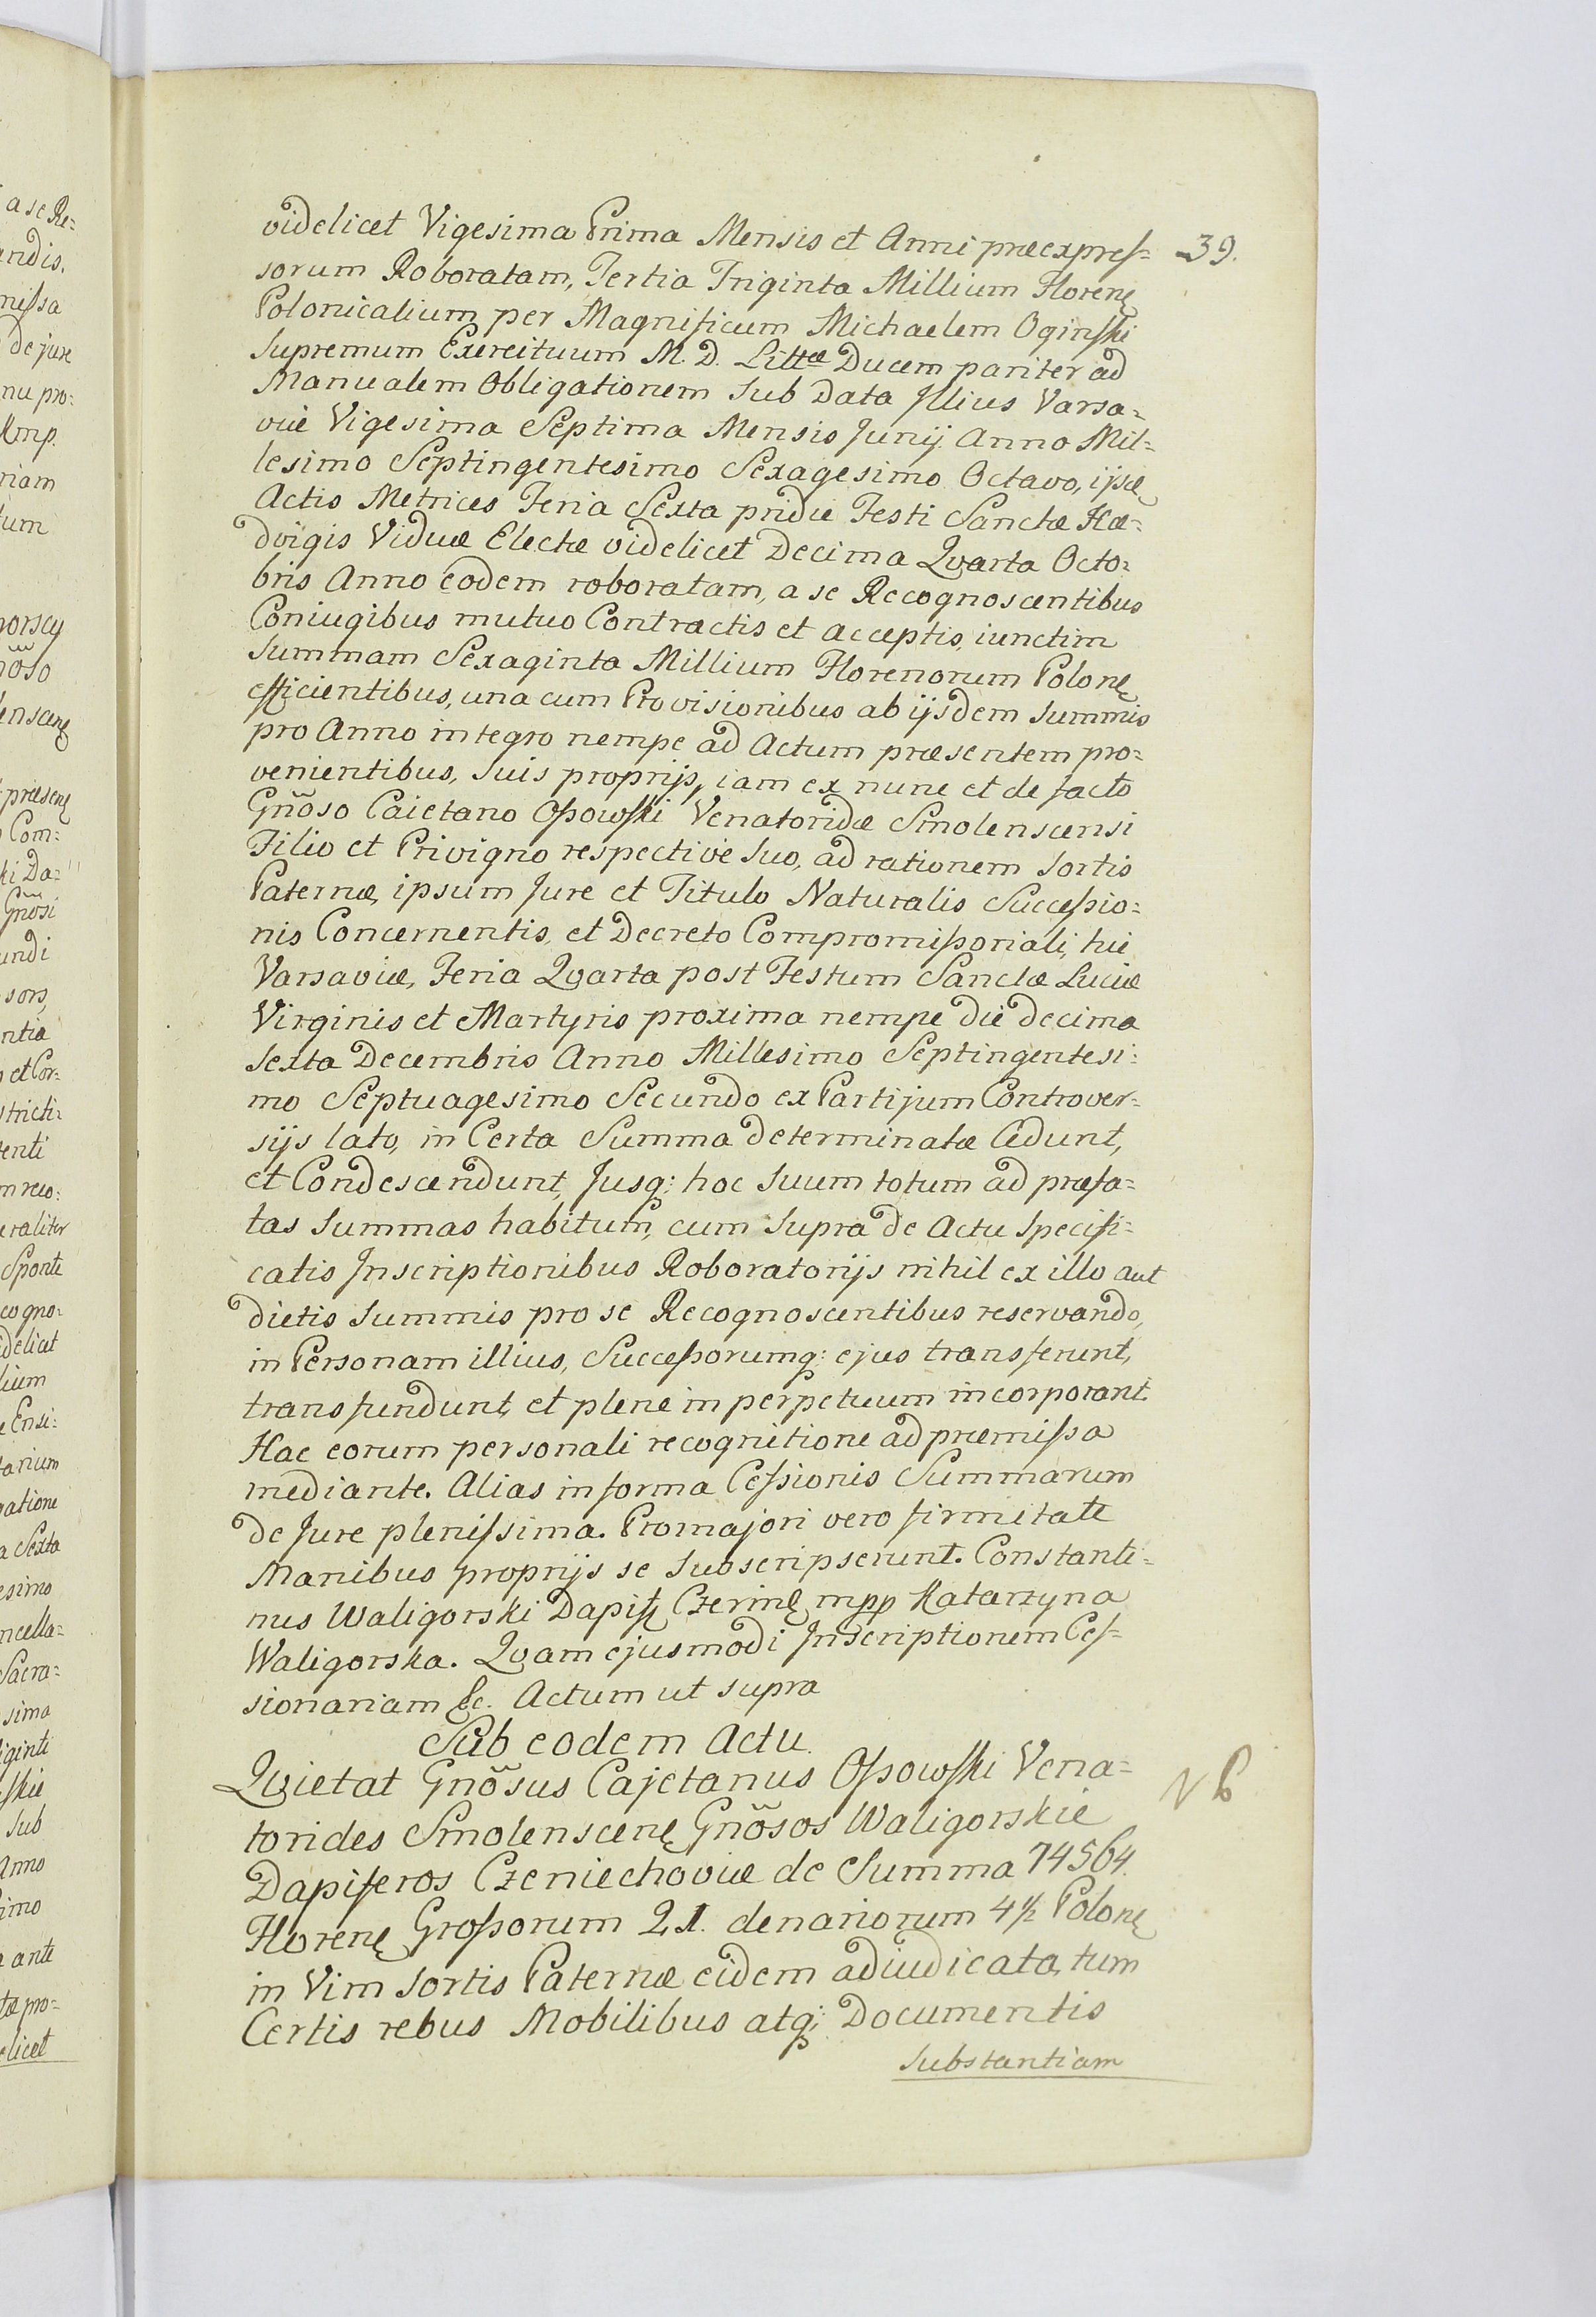 videlicet Vigesima Prima Mensis et Anni præexpreſ= 39.
sorum Roboratam, Tertia Triginta Millium Florenę
Polonicalium per Magnificum Michaelem Oginſki
Supremum Exercituum M. D. Littæ Ducem pariter ad
Manualem Obligationem sub Data Illius Varsa=
viæ Vigesima Septima Mensis Junij Anno Mil=
lesimo Septingentesimo Sexagesimo Octavo, ijsdę
Actis Metrices Feria Sexta pridie Festi Sanctæ Hæ=
dvigis Viduæ Electæ videlicet Decima Qvarta Octo=
bris Anno eodem roboratam, a se Recognoscentibus
Coniugibus mutuo Contractis et acceptis, iunctim
Summam Sexaginta Millium Florenorum Polonę
efficientibus, una cum Provisionibus ab ijsdem Summis
pro Anno integro nempe ad Actum præsentem pro=
venientibus, suis proprijs, iam ex nunc et de facto
Gñoso Caietano Oſsowſki Venatoridæ Smolenscensi
Filio et Privigno respective Suo, ad rationem Sortis
Paternæ, ipsum Jure et Titulo Naturalis Succeſsio=
nis Concernentis, et Decreto Compromiſsoriali, hic
Varsaviæ, Feria Qvarta post Festum Sanctæ Luciæ
Virginis et Martyris proxima nempe die decima
sexta Decembris Anno Millesimo Septingentesi=
mo Septuagesimo Secundo ex Partijum Controver=
sijs lato, in Certa Summa determinatæ Cedunt,
et Condescendunt, Jusq; hoc suum totum ad præfa=
tas Summas habitum, cum supra de Actu Specifi=
catis Inscriptionibus Roboratorijs nihil ex illo aut
dictis Summis pro se Recognoscentibus reservando,
in Personam illius, Succeſsorumq; ejus transferunt,
transfundunt, et plene in perpetuum incorporant.
Hac eorum personali recognitione ad præmiſsa
mediante. Alias in forma Ceſsionis Summarum
de Jure pleniſsima. Pro majori vero firmitate
Manibus proprijs se Subscripserunt. Constanti=
nus Waligorski Dapif Czerinę mpp Katarzyna
Waligorska. Qvam ejusmodi Inscriptionem Ceſ=
sionariam &c. Actum ut supra
Sub eodem Actu.
Qvietat Gñosus Cajetanus Oſsowſki Vena= NB
torides Smolenscenę Gñosos Waligorskie
Dapiferos Czeniechoviæ de Summa 74564.
Florenę Groſsorum 21. denariorum 4½ Polonę
in Vim sortis Paternæ eidem adiudicata, tum
Certis rebus Mobilibus atq; Documentis
Substantiam